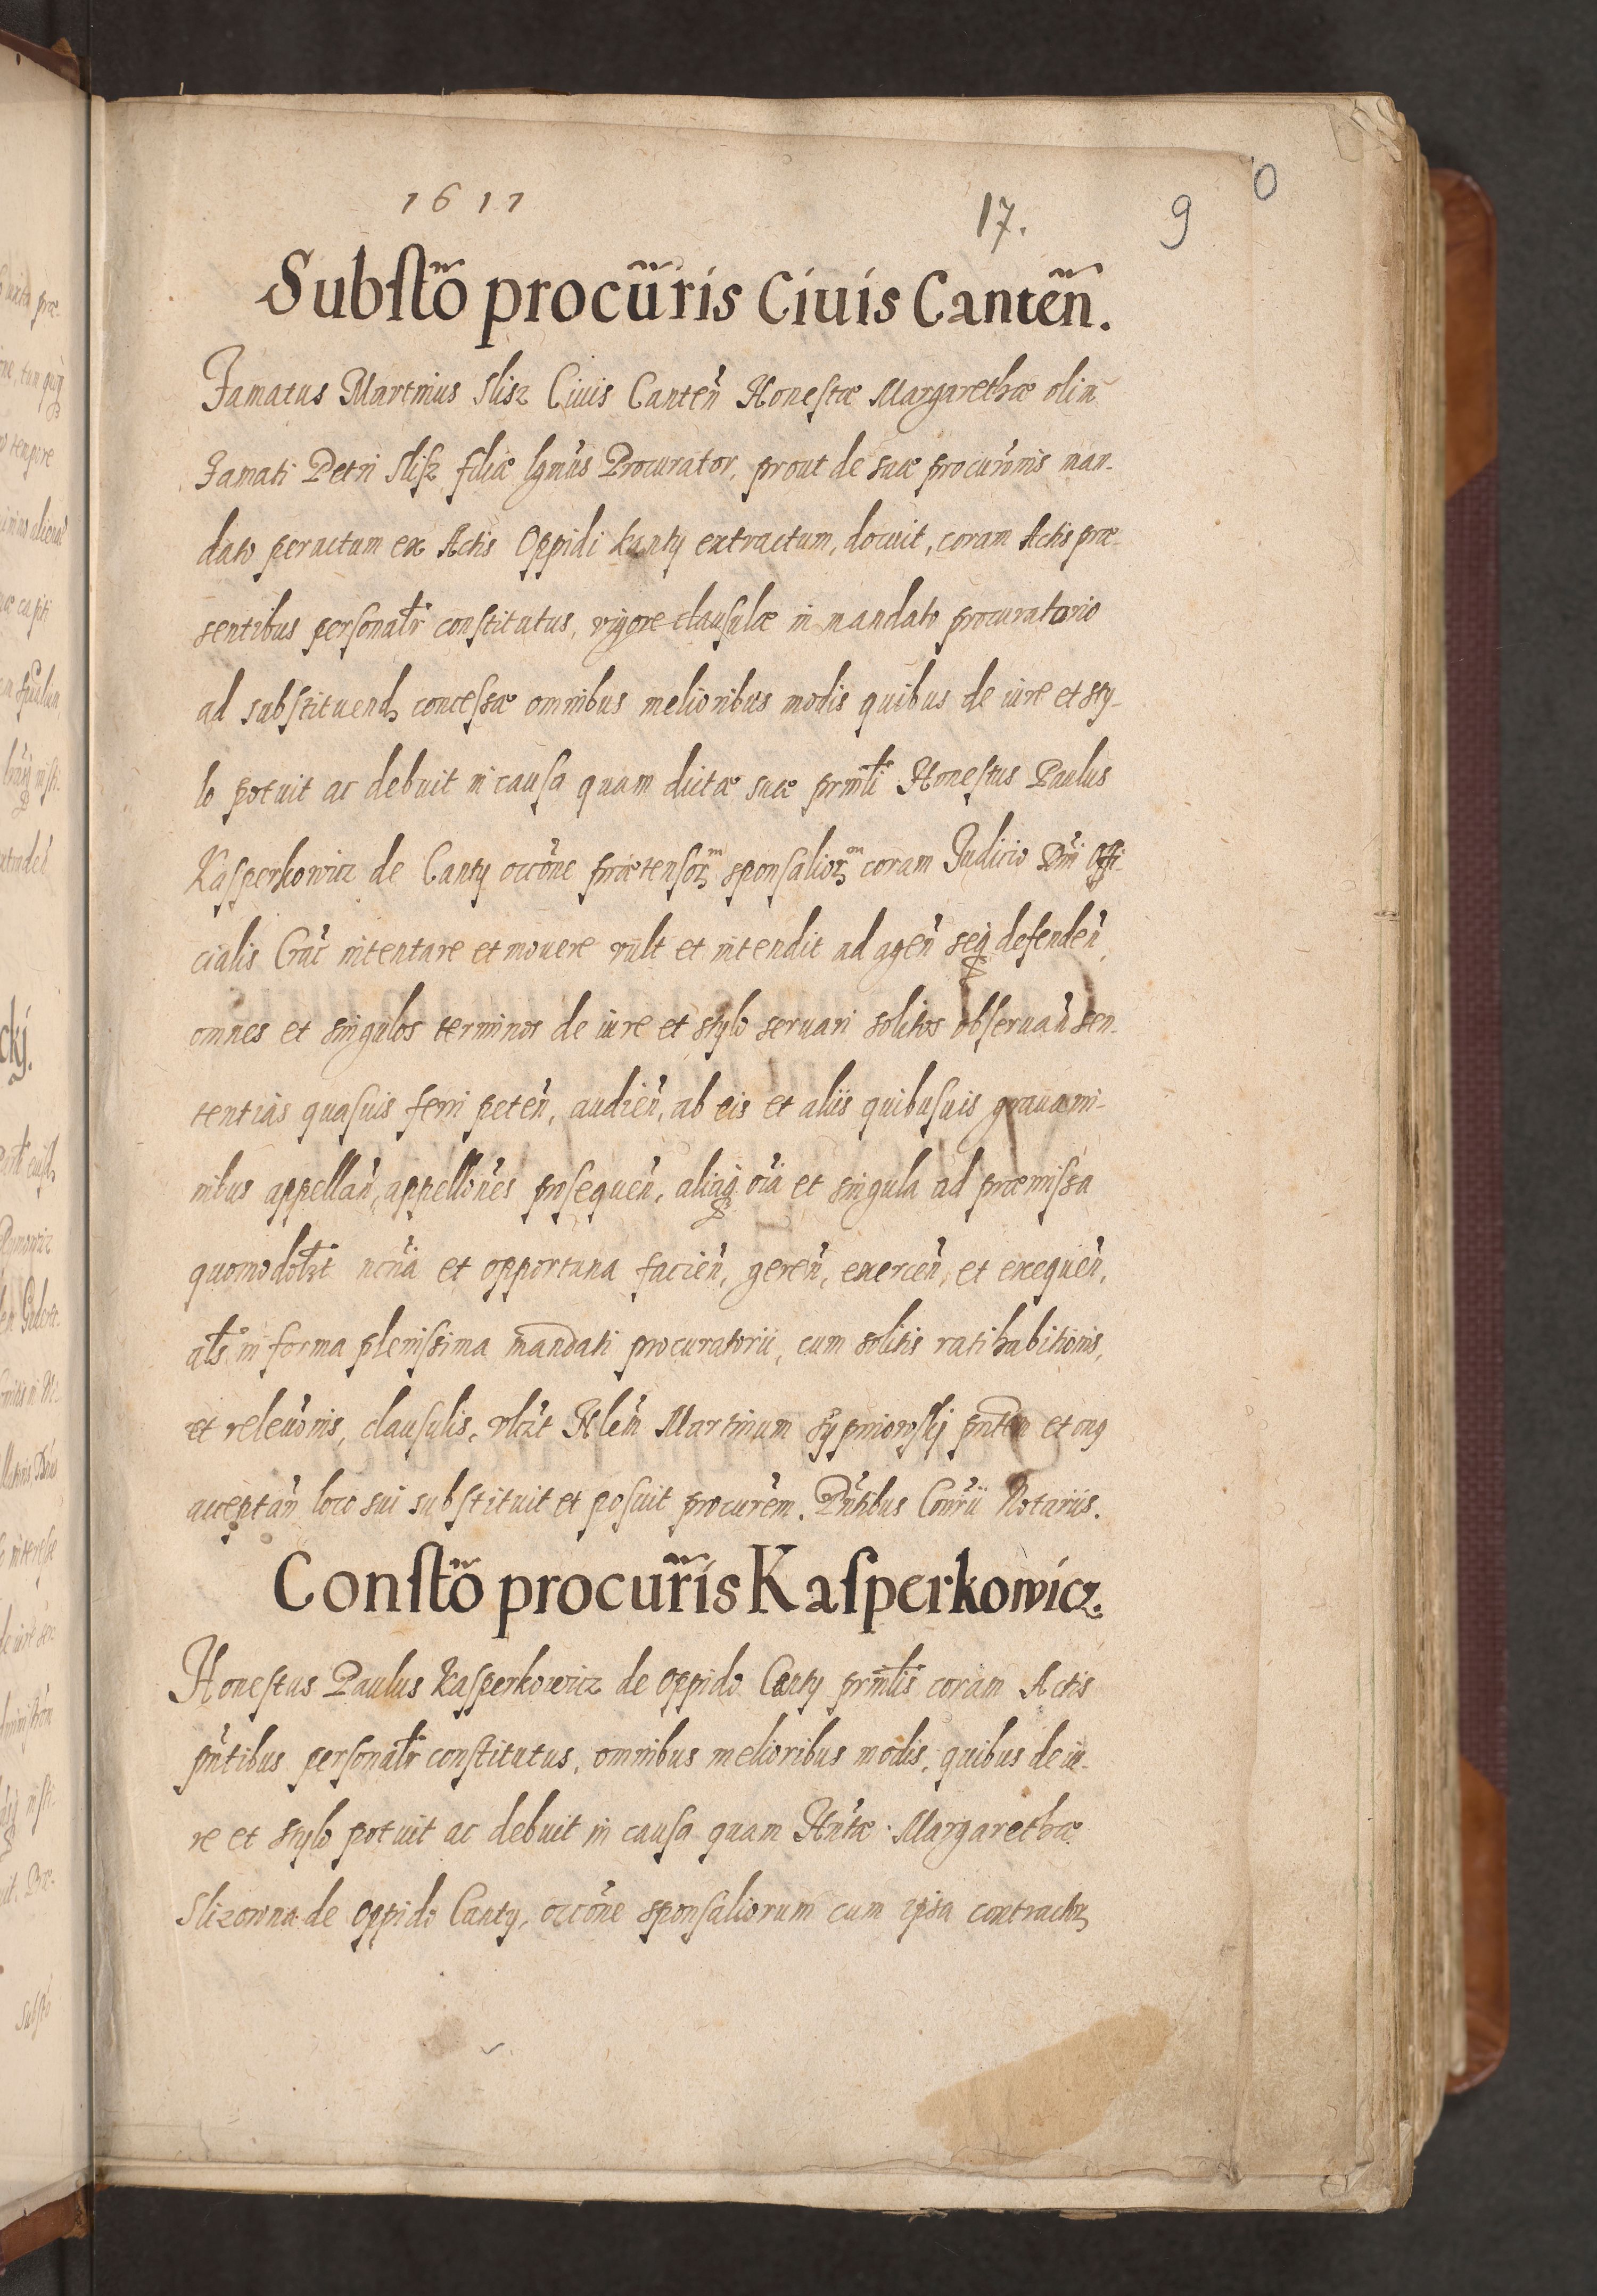 1611
17.
9
0
Substo procuris Ciuis Canten.
Famatus Martinus Slisz Ciuis Canten Honestæ Margarethæ olim
Famati Petri Slisz filiæ lgnus Procurator, prout de suæ procuronis man-
dato peractum ex Actis Oppidi Kanty extractum, docuit, coram Actis præ-
sentibus personalr constitutus, vigore clausulæ in mandato procuratorio
ad substituend concessæ omnibus melioribus modis quibus de iure et sty-
lo potuit ac debuit in causa quam dictæ suæ prinli Honestus Paulus
Kasperkowicz de Canty occone prætensor sponsalior coram Judicio Dni Offi-
cialis Crac intentare et mouere vult et intendit ad agen seq defenden,
omnes et singulos terminos de iure et stylo seruari solitos obseruan sen-
tentias quasuis ferri peten, audien, ab eis et aliis quibusuis grauami-
nibus appellan, appellones prosequen, aliaq oia et singula ad præmissa
quomodolbt ncria et opportuna facien, geren, exercen, et exequen,
als in forma plenissima mandati procuratorii, cum solitis ratihabitionis,
et releuonis, clausulis, vlt Martinum pntem et onq
acceptan loco sui substituit et posuit procurem. Pntibus Conrii Notariis.
Consto procuris Kasperkowicz.
Honestus Paulus Kasperkowicz de Oppido Canty prinlis coram Actis
pntibus personalr constitutus, omnibus melioribus modis, quibus de iu-
re et stylo potuit ac debuit in causa quam Hntæ Margarethæ
Slizowna de Oppido Canty, occone sponsaliorum cum ipsa contractor